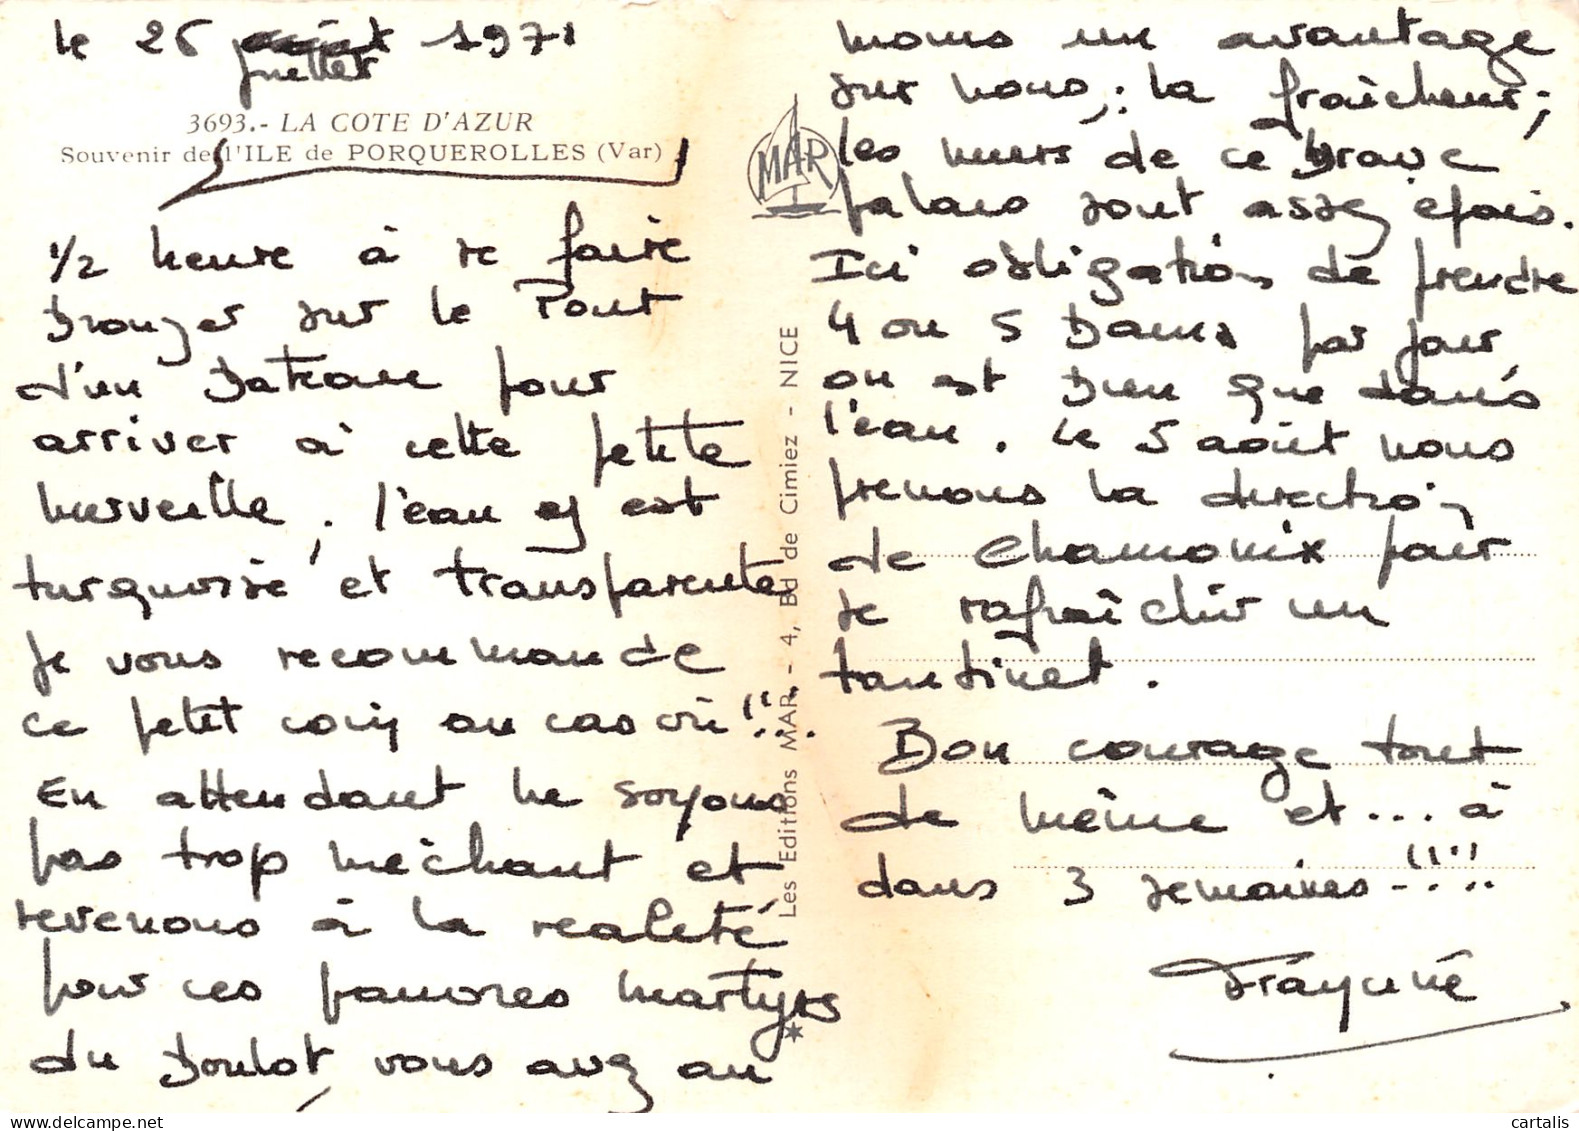 le 26 juillet 1971
3693.- LA COTE D'AZUR
Souvenir de l'ILE de PORQUEROLLES (Var)
1/2 heure à se faire
bronzer sur le Pont
d'un bateau pour
arriver à cette petite
merveille, l'eau y est
turquoise et transparente
je vous recommande
ce petit coin au cas où!!...
En attendant ne soyons
pas trop méchant et
revenons à la réalité
pour ces pauvres martyrs
du boulot, vous avez au
Les Editions MAR. - 4, Bd de Cimiez - NICE
MAR
moins un avantage
sur nous, : la fraîcheur;
les murs de ce brave
palais sont assez épais.
Ici obligation de prendre
4 ou 5 bains par jour,
on est bien que dans
l'eau. Le 5 août nous
prenons la direction
de Chamonix pour
se rafraîchir un
tantinet.
Bon courage tout
de même et... à
dans 3 semaines-!!!!
cartalis
cartalis.com